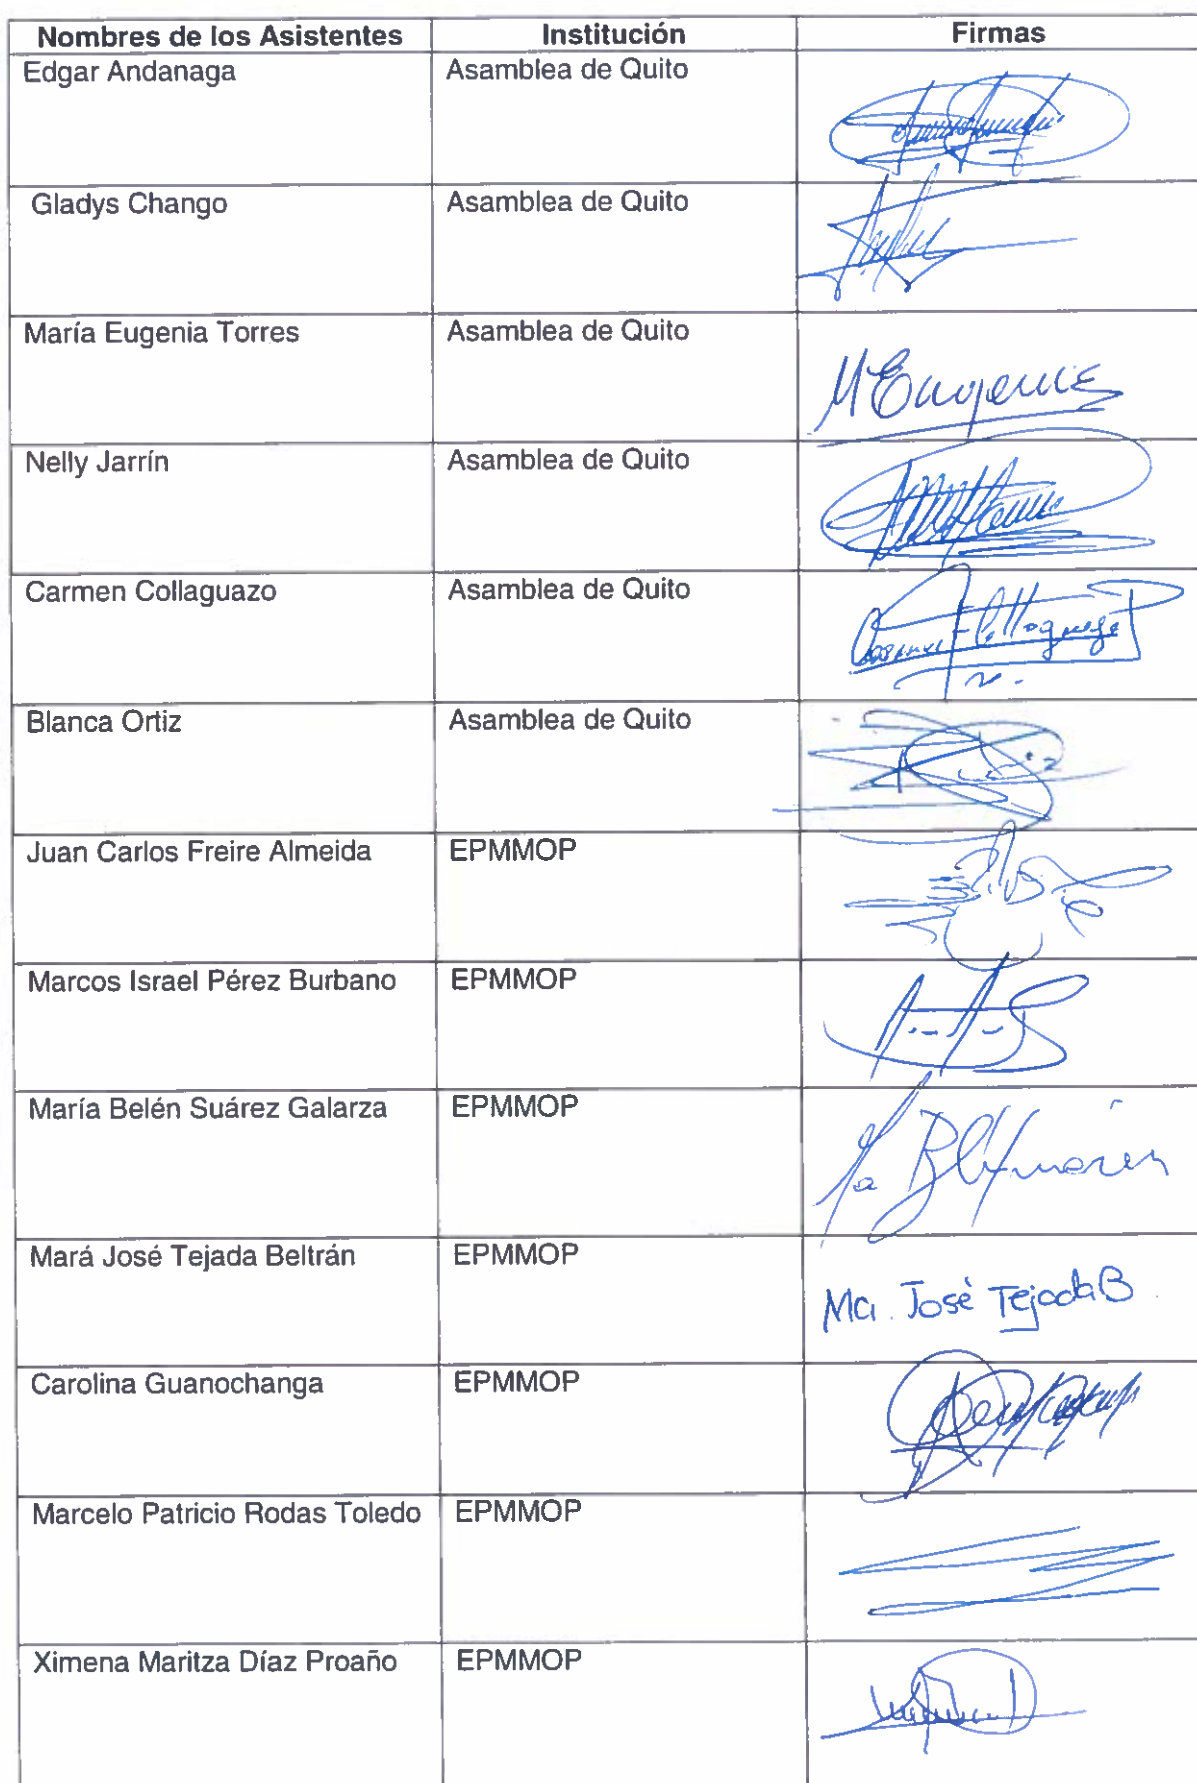 Nombres de los Asistentes Institución Firmas
Edgar Andanaga Asamblea de Quito
Gladys Chango Asamblea de Quito
María Eugenia Torres Asamblea de Quito
M Eugenia
Nelly Jarrín Asamblea de Quito
Carmen Collaguazo Asamblea de Quito
Blanca Ortiz Asamblea de Quito
Juan Carlos Freire Almeida EPMMOP
Marcos Israel Pérez Burbano EPMMOP
María Belén Suárez Galarza EPMMOP
Mará José Tejada Beltrán EPMMOP
Ma. José Tejada B.
Carolina Guanochanga EPMMOP
Marcelo Patricio Rodas Toledo EPMMOP
Ximena Maritza Díaz Proaño EPMMOP